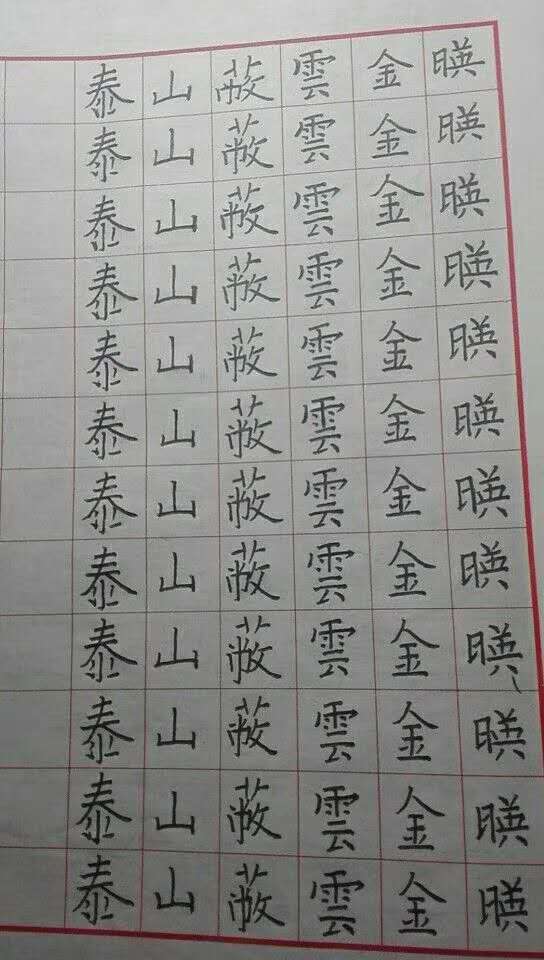 暎暎暎暎暎暎暎暎暎暎暎暎
金金金金金金金金金金金金
雲雲雲雲雲雲雲雲雲雲雲雲
蔽蔽蔽蔽蔽蔽蔽蔽蔽蔽蔽蔽
山山山山山山山山山山山山
泰泰泰泰泰泰泰泰泰泰泰泰